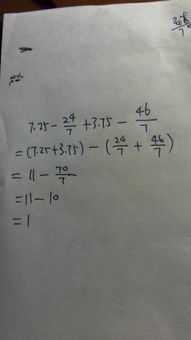 7.25 - 24/7 + 3.75 - 46/7
= (7.25 + 3.75) - (24/7 + 46/7)
= 11 - 70/7
= 11 - 10
= 1